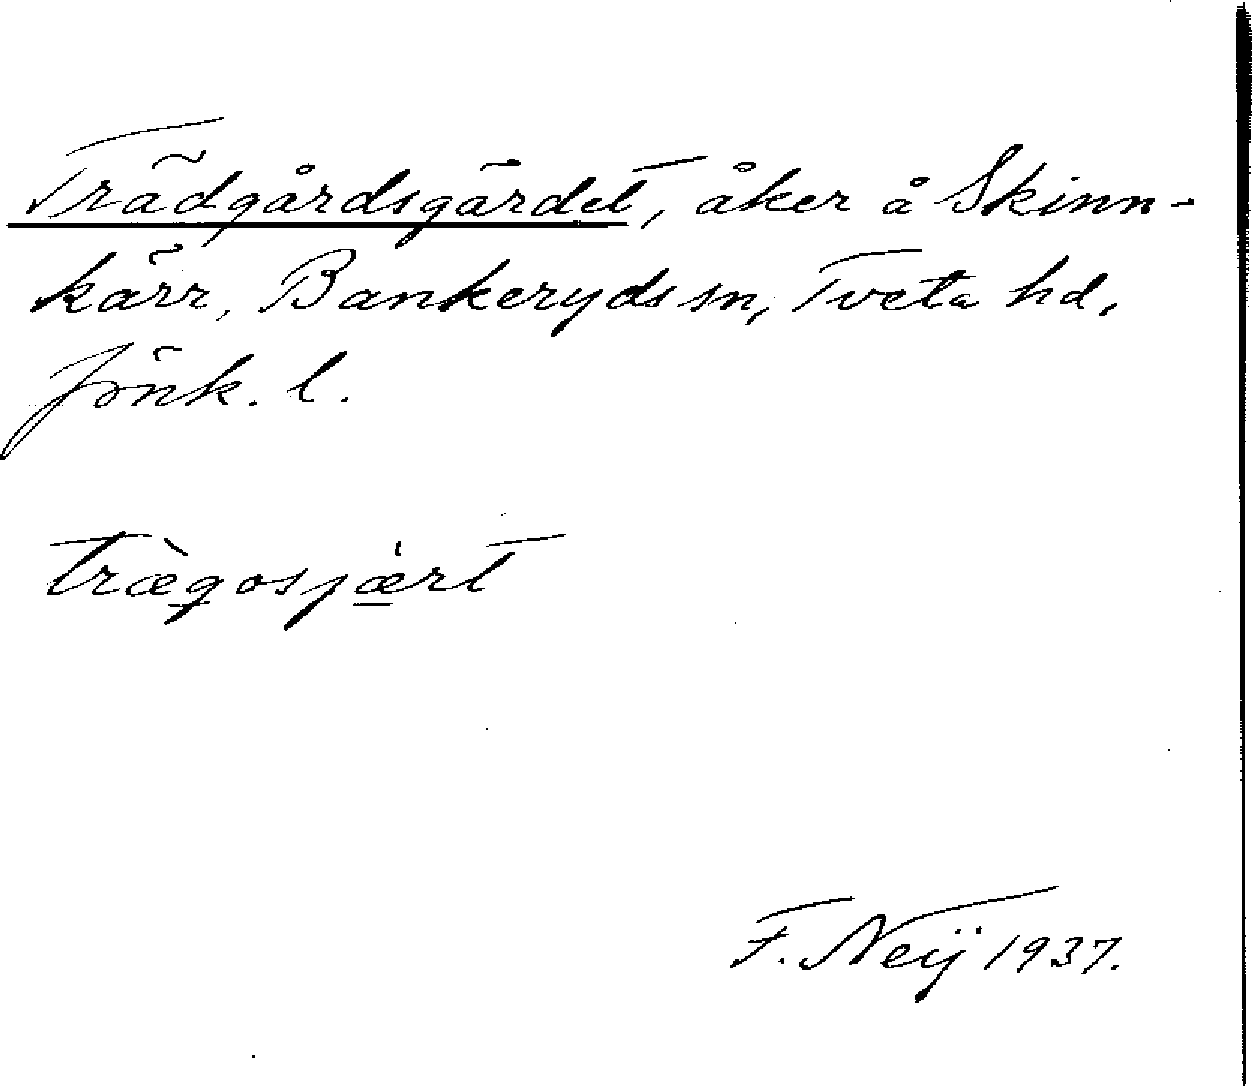 Trädgårdsgärdet, åker å Skinn-
kärr, Bankeryds sn, Tveta hd,
Jönk. l.
træ̀gosjæ̍rt
F. Neij 1937.